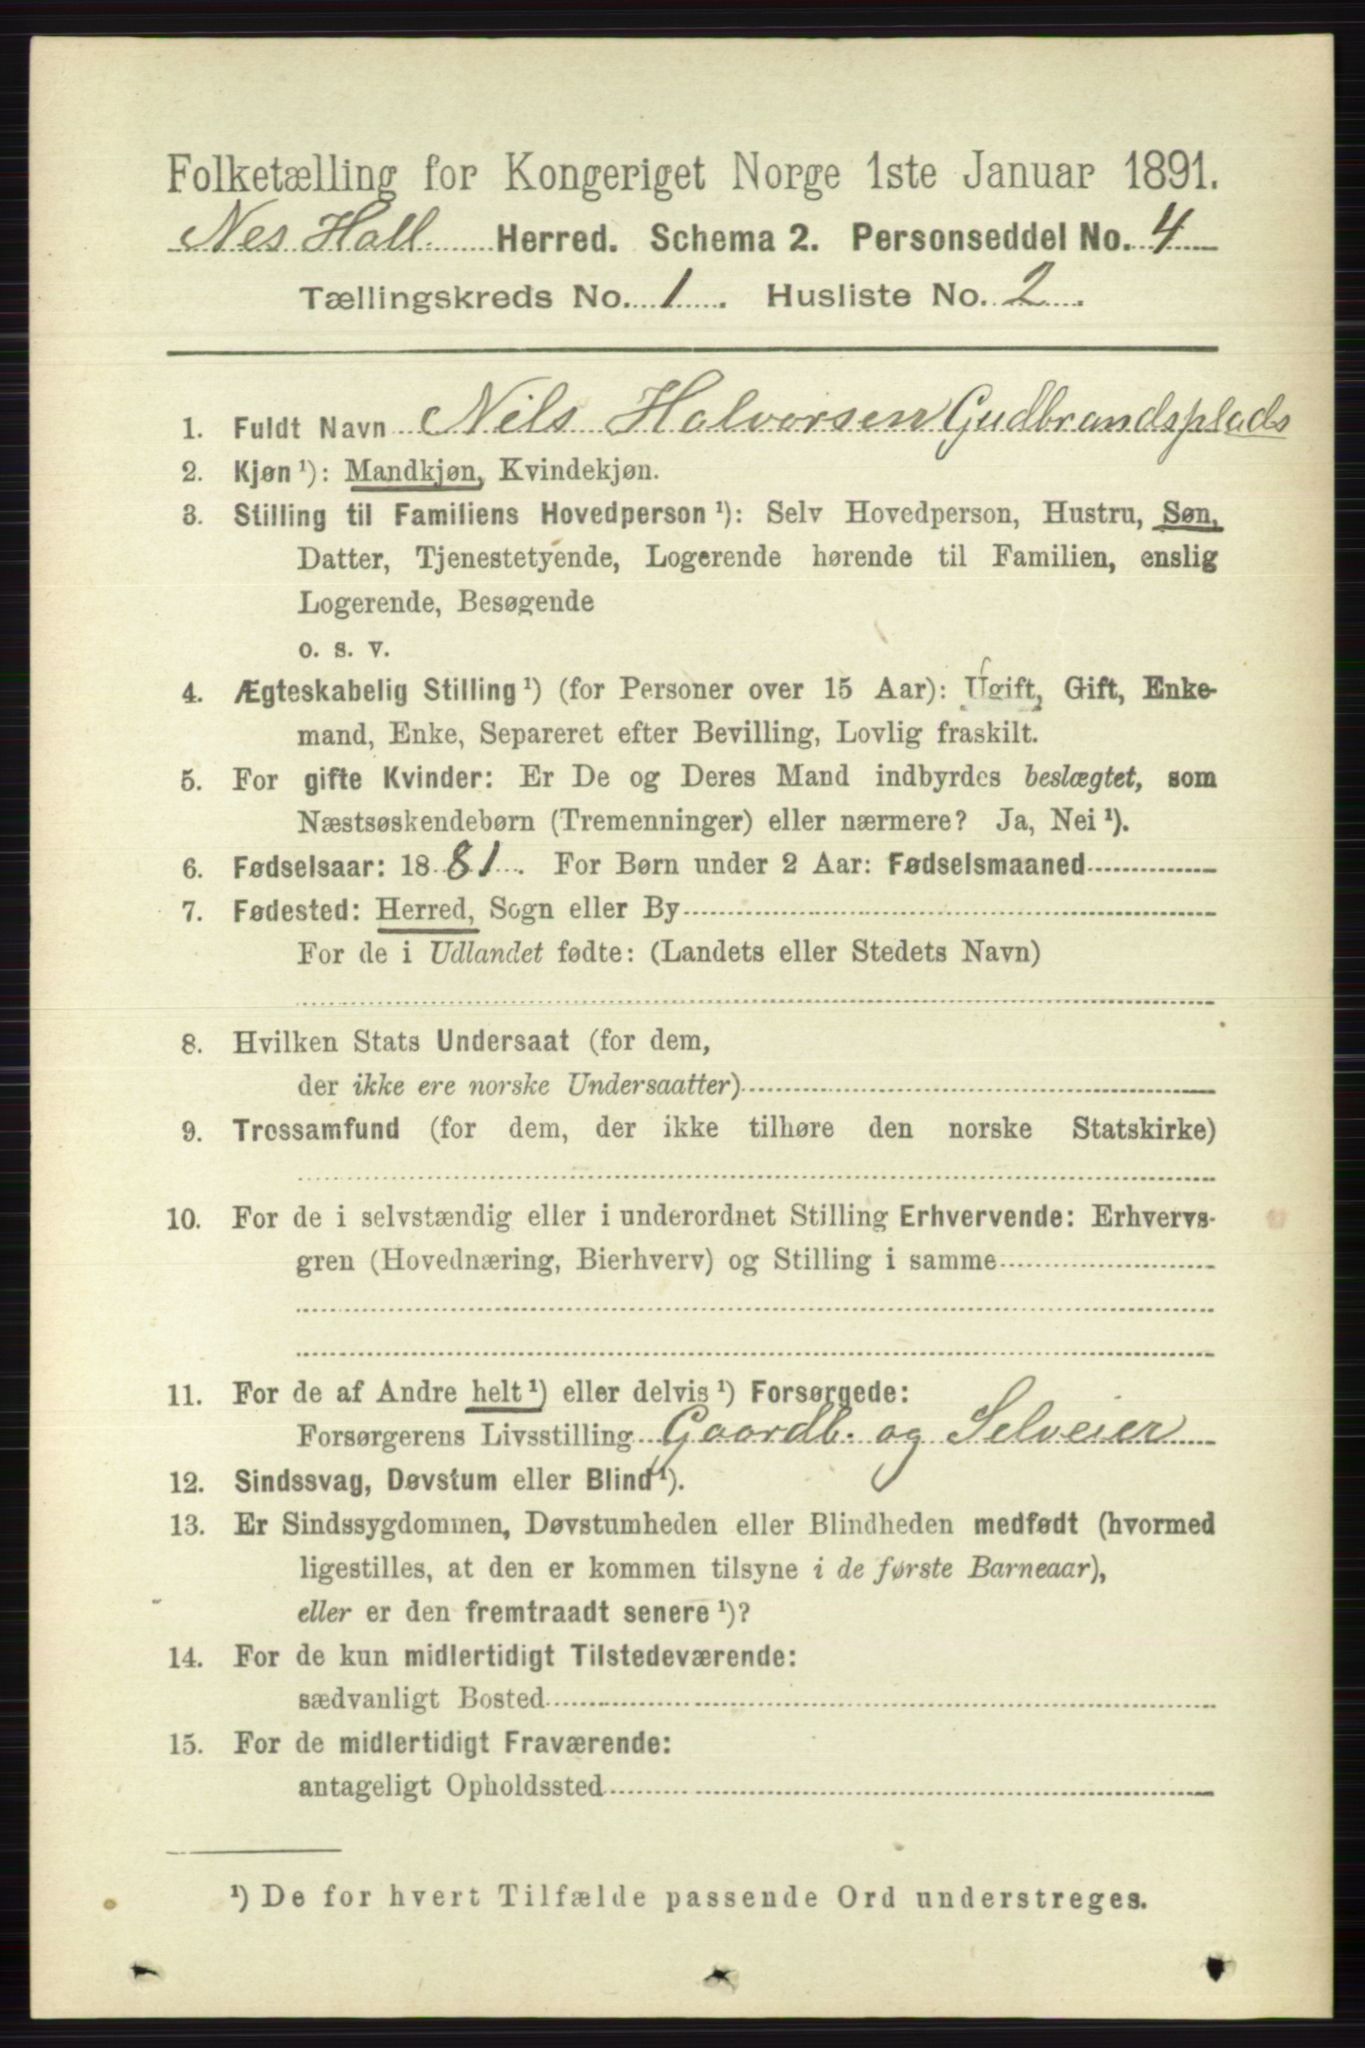 Folketælling for Kongeriget Norge 1ste Januar 1891.
Nes Hall. Herred. Schema 2. Personseddel No. 4
Tællingskreds No. 1. Husliste No. 2.
1. Fuldt Navn Nils Halvorsen Gudbrandsplads
2. Kjøn ¹): Mandkjøn, Kvindekjøn.
3. Stilling til Familiens Hovedperson ¹): Selv Hovedperson, Hustru, Søn,
Datter, Tjenestetyende, Logerende hørende til Familien, enslig
Logerende, Besøgende
o. s. v.
4. Ægteskabelig Stilling ¹) (for Personer over 15 Aar): Ugift, Gift, Enke-
mand, Enke, Separeret efter Bevilling, Lovlig fraskilt.
5. For gifte Kvinder: Er De og Deres Mand indbyrdes beslægtet, som
Næstsøskendebørn (Tremenninger) eller nærmere? Ja, Nei ¹).
6. Fødselsaar: 1881. For Børn under 2 Aar: Fødselsmaaned
7. Fødested: Herred, Sogn eller By
For de i Udlandet fødte: (Landets eller Stedets Navn)
8. Hvilken Stats Undersaat (for dem,
der ikke ere norske Undersaatter)
9. Trossamfund (for dem, der ikke tilhøre den norske Statskirke)
10. For de i selvstændig eller i underordnet Stilling Erhvervende: Erhvervs-
gren (Hovednæring, Bierhverv) og Stilling i samme
11. For de af Andre helt ¹) eller delvis ¹) Forsørgede:
Forsørgerens Livsstilling Gaardb. og Selveier
12. Sindssvag, Døvstum eller Blind ¹).
13. Er Sindssygdommen, Døvstumheden eller Blindheden medfødt (hvormed
ligestilles, at den er kommen tilsyne i de første Barneaar),
eller er den fremtraadt senere ¹)?
14. For de kun midlertidigt Tilstedeværende:
sædvanligt Bosted
15. For de midlertidigt Fraværende:
antageligt Opholdssted
¹) De for hvert Tilfælde passende Ord understreges.